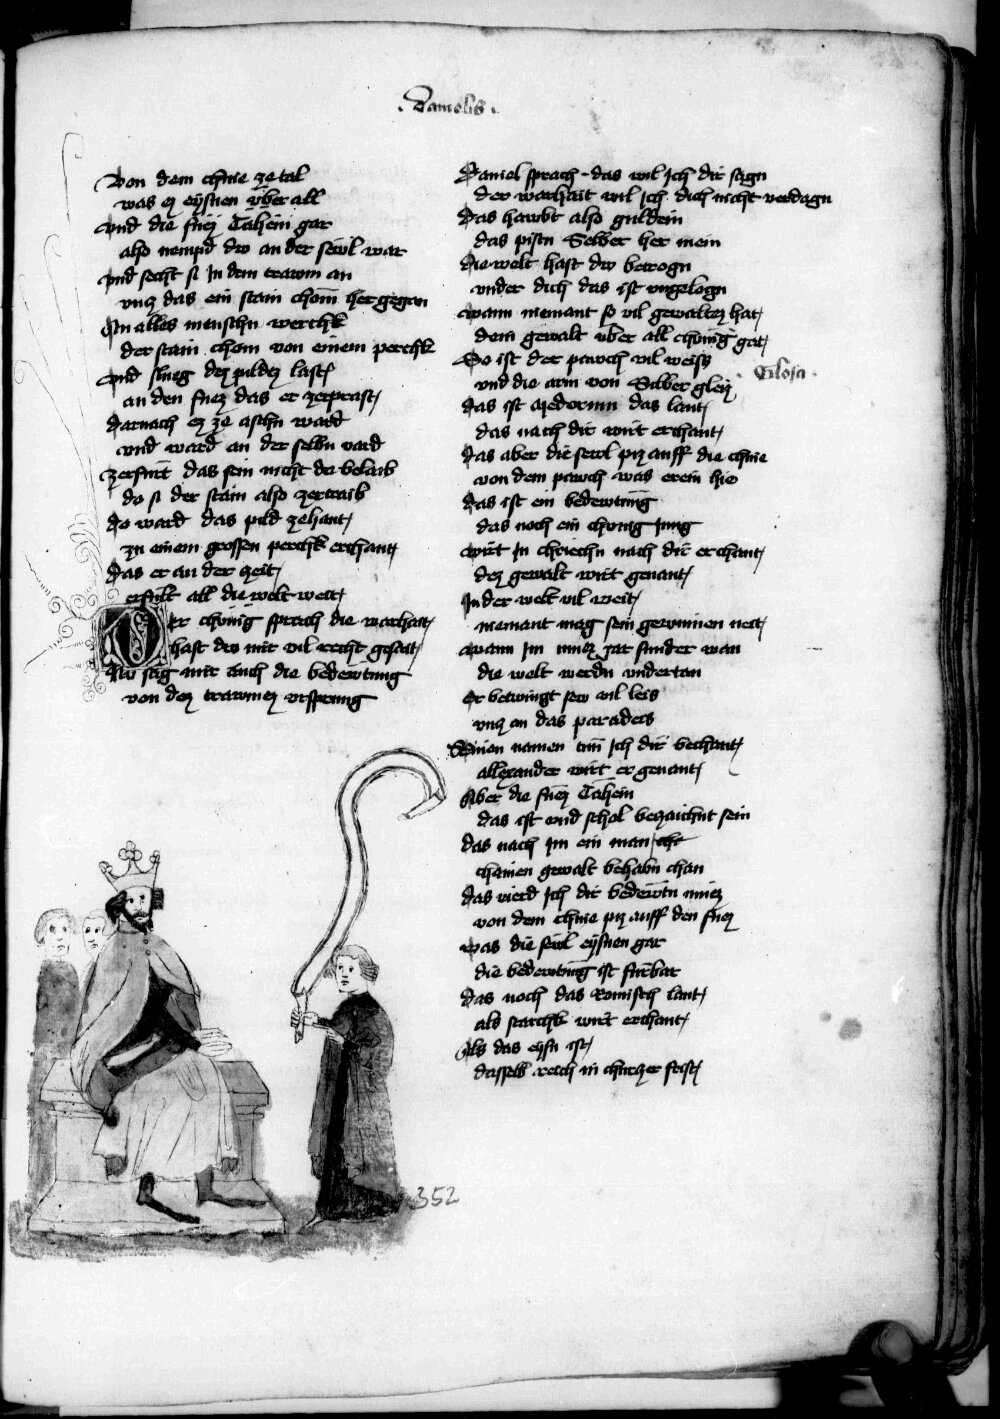 . Danielis .
Von dem chnie ze tal
was ez eysnen vber all
vnd die fuez Tahein gar
also nempd dw an der sewl war
vnd secht si In dem trawm an
vncz das ein stain chom her gegan
An alles menschn werchk
der stain chom von einem perchk
vnd slueg dez pildez last
an den fuez das er zerprast
darnach ez ze aschn ward
vnd ward an der selbn vard
zerfuert das sein nicht do belaib
do si der stain also zertraib
do ward das pild zehant
zu einem grossen perchk erchant
das er an der zeit
erfult all die welt weit
Der chönig sprach die warhait
hast dw mir vil recht gesait
Nw sag mir auch die bedewtung
von dez trawmez vrsprung
Daniel sprach das wil Ich dir sagn
der warhait wil Ich dich nicht verdagn
das hawbt also guldein
das pistu Selber her mein
die welt hast dw betrogn
vnder dich das ist vngelogn
wann niemant so vil gewaltez hat
dem gewalt vber all chönig gat
So ist der pawch vil weiss
vnd die arm von Silber gleiz
Glosa .
das ist Medorum das lant
das nach dir wirt erchant
das aber die sewl piz auff die chnie
von dem pawch was erein hie
das ist ein bedewtung
das noch ein chönig Jung
wirt In chriechn nach dir erchant
dez gewalt wirt genant
In der welt vil weit
niemant mag sein gewinnen neit
wann Im muez gar sunder wan
die welt werdn vndertan
Er betwingt sew vil leis
vncz an das paradeis
Seinen namen tun Ich dir bechant
allexander wirt er genant
Aber die fuez Tahein
das ist vnd schol bezaichnt sein
das nach Im ein man
chainen gewalt behabn chan
das wierd Ich dir bedewtn muez
von dem chnie piz auff den fuez
was die sewl eysnen gar
die bedewtung ist furbar
das noch das Romisch lant
als starchk wirt erchant
Als das eysn ist
dasselb reich in churczer frist
352